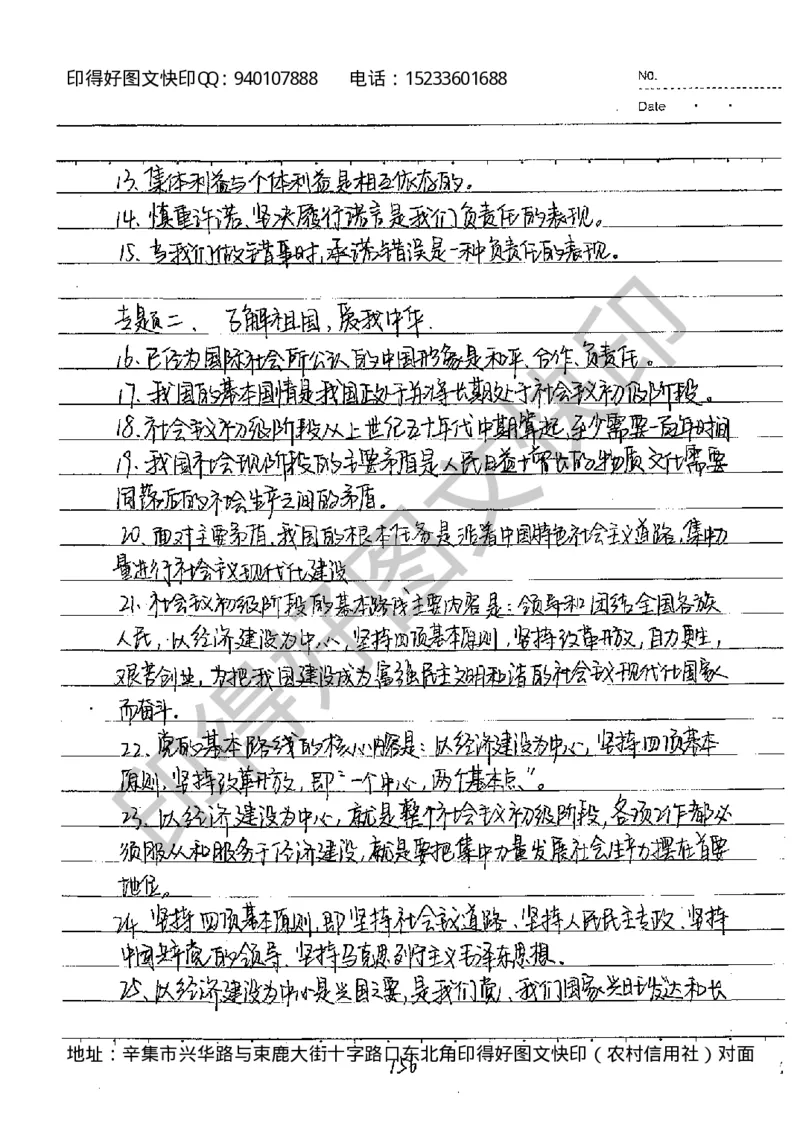 印得好图文快印QQ：940107888 电话：15233601688
No.
Date
13、集体利益与个体利益是相互依存的。
14、慎重许诺、坚决履行诺言是我们负责任的表现。
15、当我们做错事时，承诺错误是一种负责任的表现。
专题二、了解祖国，爱我中华.
16、已经为国际社会所公认的中国形象是和平、合作、负责任。
17、我国的基本国情是我国正处于并将长期处于社会主义初级阶段。
18、社会主义初级阶段从上世纪五十年代中期算起，至少需要一百年时间
19、我国社会现阶段的主要矛盾是人民日益增长的物质文化需要
同落后的社会生产之间的矛盾。
20、面对主要矛盾，我国的根本任务是沿着中国特色社会主义道路，集中力
量进行社会主义现代化建设
21、社会主义初级阶段的基本路线主要内容是：领导和团结全国各族
人民，以经济建设为中心，坚持四项基本原则，坚持改革开放，自力更生，
艰苦创业，为把我国建设成为富强民主文明和谐的社会主义现代化国家
而奋斗.
22、党的基本路线的核心内容是：以经济建设为中心，坚持四项基本
原则，坚持改革开放，即“一个中心，两个基本点”。
23、以经济建设为中心，就是整个社会主义初级阶段，各项工作都必
须服从和服务于经济建设，就是要把集中力量发展社会生产力摆在首要
地位。
24、坚持四项基本原则，即坚持社会主义道路、坚持人民民主专政、坚持
中国共产党的领导、坚持马克思列宁主义毛泽东思想。
25、以经济建设为中心是兴国之要，是我们党、我们国家兴旺发达和长
地址：辛集市兴华路与束鹿大街十字路口东北角印得好图文快印（农村信用社）对面
156
印得好图文快印